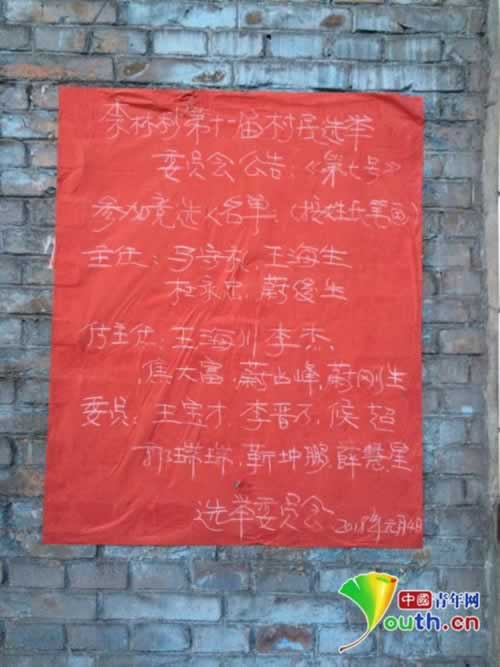 李林村第十一届村民选举
委员会公告:《第七号》
参加竞选人名单:(按姓氏笔画)
主任: 王海生
杜永忠,蔚俊生
付主任:王海川李杰,
焦大富,蔚占峰,蔚刚生
委员:王宝才,李晋万,侯超
郭瑞瑞,靳坤鹏,薛慧星
选举委员会 2018年元月4日
中國青年网
Youth.cn